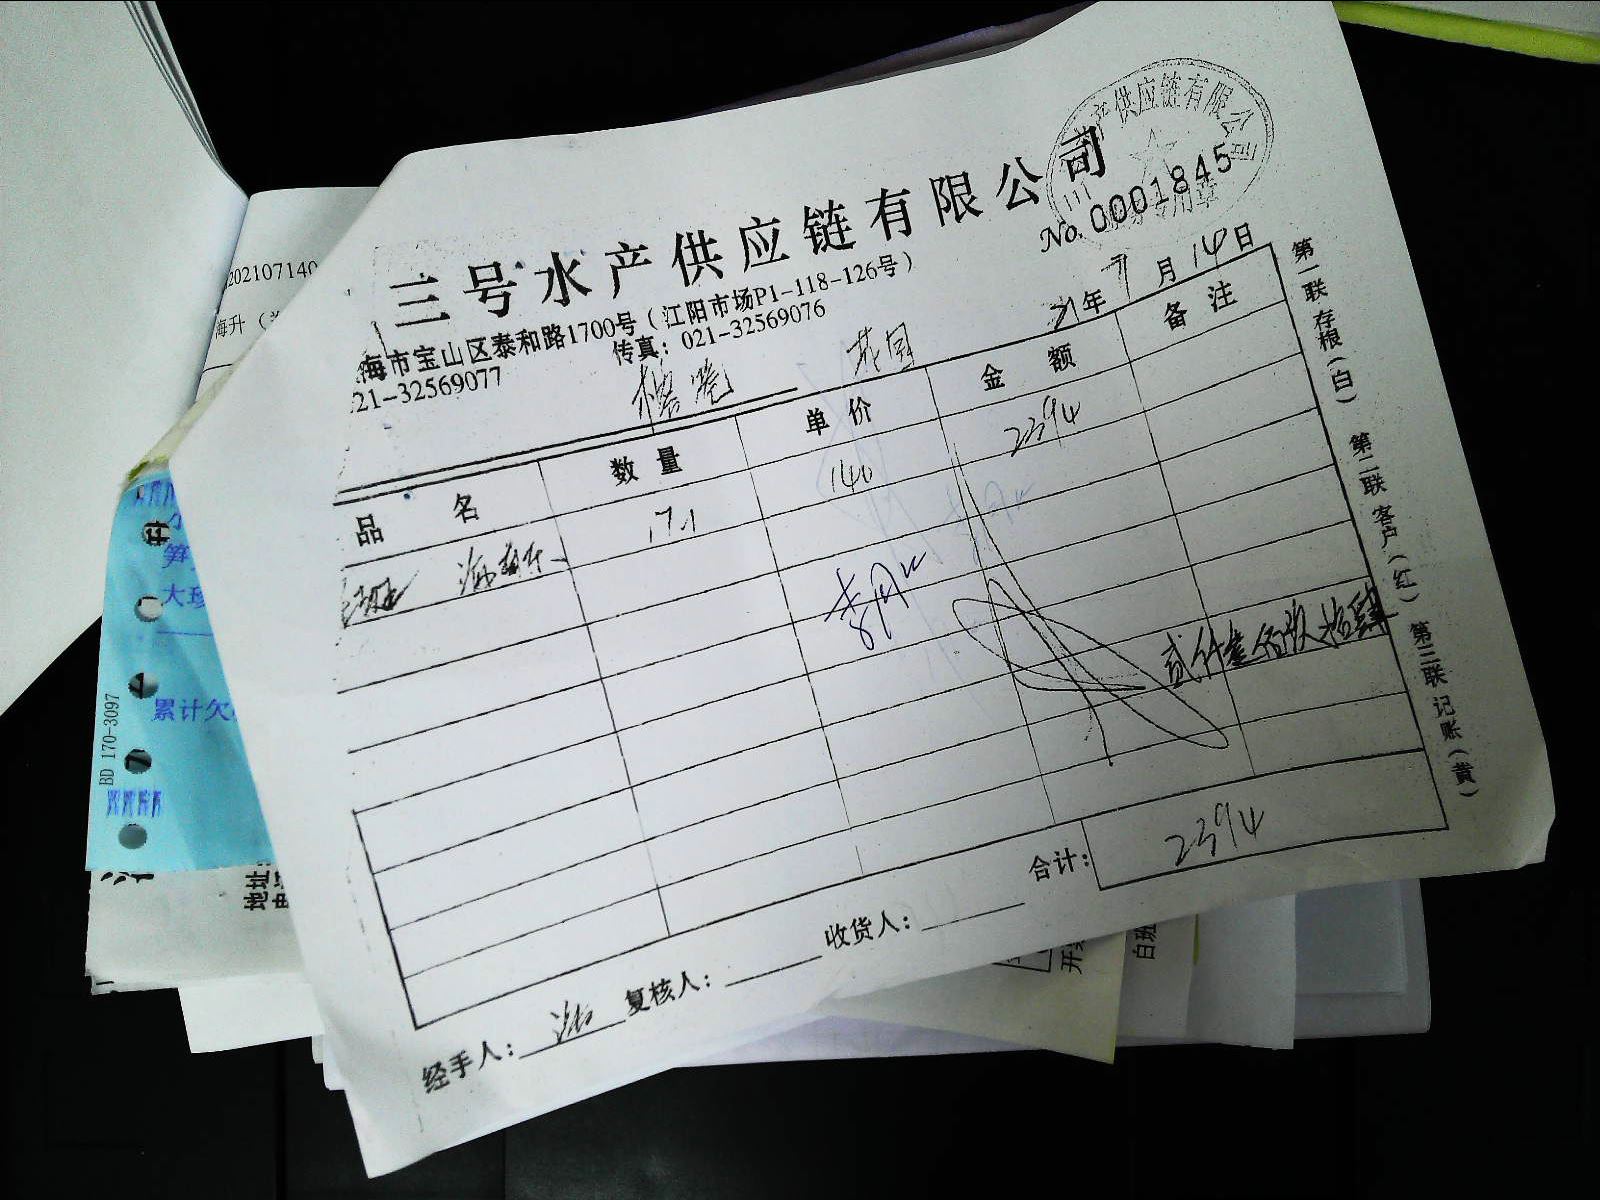 产供应链有限公司
专用章
三号水产供应链有限公司
No. 0001845
海市宝山区泰和路1700号（江阳市场P1-118-126号）
21-32569077
传真：021-32569076
21年 7月 14日
品名 数量 单价 金额 备注
17.1 140 2394
贰仟叁佰玖拾肆
合计： 2394
经手人： 复核人： 收货人：
第一联 存根（白） 第二联 客户（红） 第三联 记账（黄）
202107140
海升（
大珍
累计欠
BD 170-3097
地址
白班